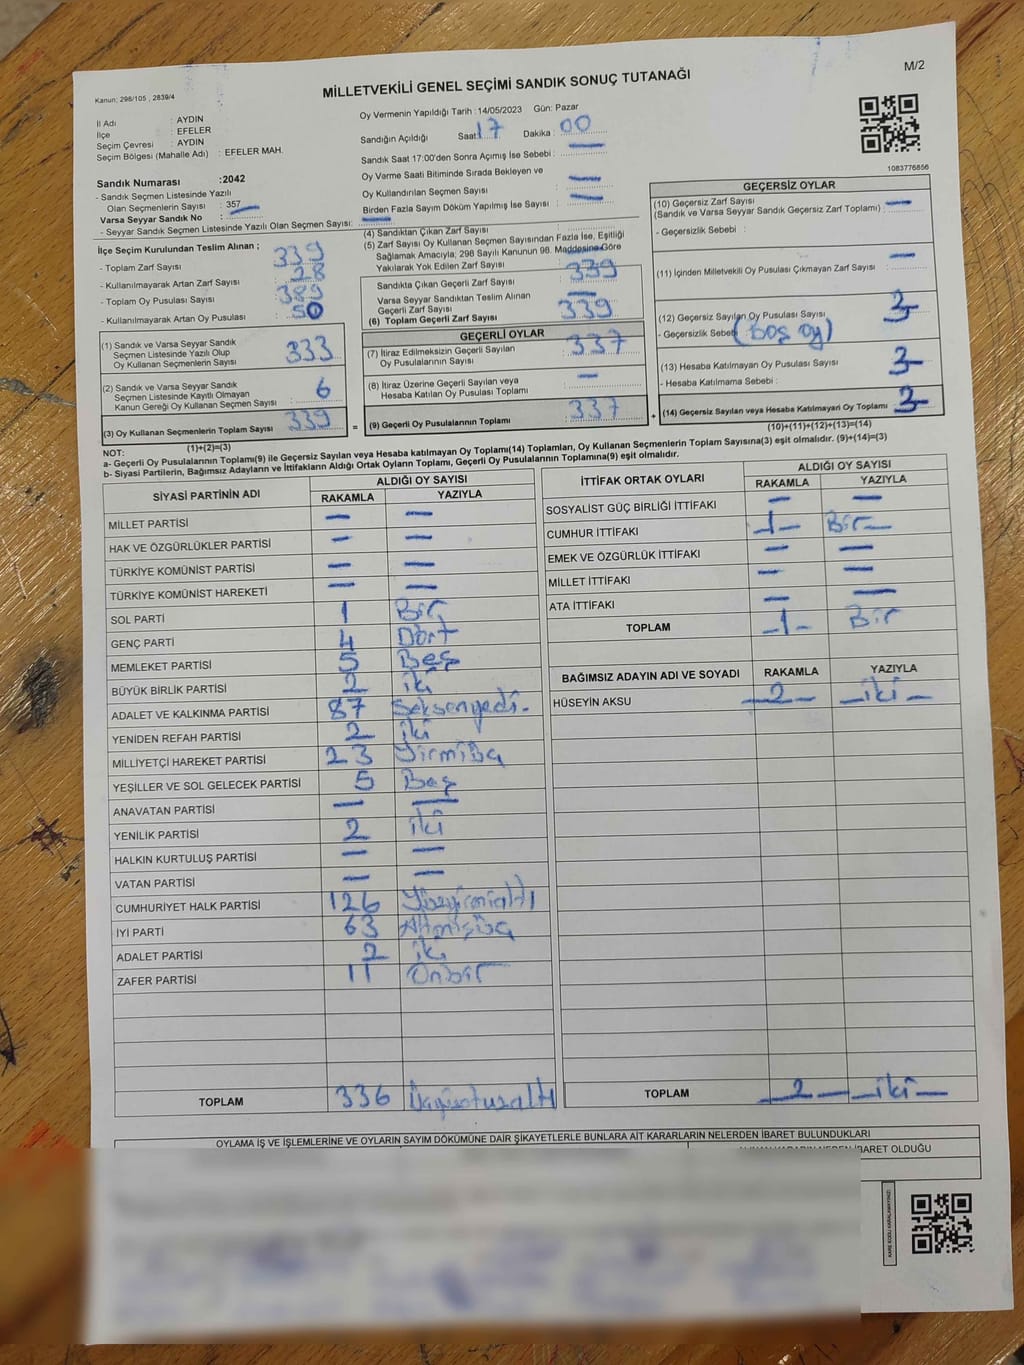 M/2
MİLLETVEKİLİ GENEL SEÇİMİ SANDIK SONUÇ TUTANAĞI
Kanun: 298/105 , 2839/4
İl Adı : AYDIN
İlçe : EFELER
Seçim Çevresi : AYDIN
Seçim Bölgesi (Mahalle Adı) : EFELER MAH.
Sandık Numarası :2042
- Sandık Seçmen Listesinde Yazılı
Olan Seçmenlerin Sayısı : 357
Varsa Seyyar Sandık No : —
- Seyyar Sandık Seçmen Listesinde Yazılı Olan Seçmen Sayısı: —
Oy Vermenin Yapıldığı Tarih : 14/05/2023 Gün: Pazar
Sandığın Açıldığı Saat: 17 Dakika : 00
Sandık Saat 17:00'den Sonra Açımış İse Sebebi : —
Oy Varme Saati Bitiminde Sırada Bekleyen ve
Oy Kullandırılan Seçmen Sayısı : —
Birden Fazla Sayım Döküm Yapılmış İse Sayısı : —
1083776856
İlçe Seçim Kurulundan Teslim Alınan ;
- Toplam Zarf Sayısı : 339
- Kullanılmayarak Artan Zarf Sayısı : 28
- Toplam Oy Pusulası Sayısı : 389
- Kullanılmayarak Artan Oy Pusulası : 50
(1) Sandık ve Varsa Seyyar Sandık
Seçmen Listesinde Yazılı Olup
Oy Kullanan Seçmenlerin Sayısı : 333
(2) Sandık ve Varsa Seyyar Sandık
Seçmen Listesinde Kayıtlı Olmayan
Kanun Gereği Oy Kullanan Seçmen Sayısı : 6
(3) Oy Kullanan Seçmenlerin Toplam Sayısı : 339
(1)+(2)=(3)
(4) Sandıktan Çıkan Zarf Sayısı :
(5) Zarf Sayısı Oy Kullanan Seçmen Sayısından Fazla İse, Eşitliği
Sağlamak Amacıyla; 298 Sayılı Kanunun 98. Maddesine Göre
Yakılarak Yok Edilen Zarf Sayısı :
Sandıkta Çıkan Geçerli Zarf Sayısı : 339
Varsa Seyyar Sandıktan Teslim Alınan
Geçerli Zarf Sayısı : —
(6) Toplam Geçerli Zarf Sayısı : 339
GEÇERLİ OYLAR
(7) İtiraz Edilmeksizin Geçerli Sayılan
Oy Pusulalarının Sayısı : 337
(8) İtiraz Üzerine Geçerli Sayılan veya
Hesaba Katılan Oy Pusulası Toplamı : —
= (9) Geçerli Oy Pusulalarının Toplamı : 337
GEÇERSİZ OYLAR
(10) Geçersiz Zarf Sayısı
(Sandık ve Varsa Seyyar Sandık Geçersiz Zarf Toplamı) : —
- Geçersizlik Sebebi :
(11) İçinden Milletvekili Oy Pusulası Çıkmayan Zarf Sayısı : —
(12) Geçersiz Sayılan Oy Pusulası Sayısı : 3
- Geçersizlik Sebebi (Boş oy)
(13) Hesaba Katılmayan Oy Pusulası Sayısı : 3
- Hesaba Katılmama Sebebi :
+ (14) Geçersiz Sayılan veya Hesaba Katılmayan Oy Toplamı : 3
(10)+(11)+(12)+(13)=(14)
NOT:
a- Geçerli Oy Pusulalarının Toplamı(9) ile Geçersiz Sayılan veya Hesaba katılmayan Oy Toplamı(14) Toplamları, Oy Kullanan Seçmenlerin Toplam Sayısına(3) eşit olmalıdır. (9)+(14)=(3)
b- Siyasi Partilerin, Bağımsız Adayların ve İttifakların Aldığı Ortak Oyların Toplamı, Geçerli Oy Pusulalarının Toplamına(9) eşit olmalıdır.
SİYASİ PARTİNİN ADI ALDIĞI OY SAYISI
RAKAMLA YAZIYLA
MİLLET PARTİSİ — —
HAK VE ÖZGÜRLÜKLER PARTİSİ — —
TÜRKİYE KOMÜNİST PARTİSİ — —
TÜRKİYE KOMÜNİST HAREKETİ — —
SOL PARTİ 1 Bir
GENÇ PARTİ 4 Dört
MEMLEKET PARTİSİ 5 Beş
BÜYÜK BİRLİK PARTİSİ 2 iki
ADALET VE KALKINMA PARTİSİ 87 Seksenyedi-
YENİDEN REFAH PARTİSİ 2 iki
MİLLİYETÇİ HAREKET PARTİSİ 23 Yirmiüç
YEŞİLLER VE SOL GELECEK PARTİSİ 5 Beş
ANAVATAN PARTİSİ — —
YENİLİK PARTİSİ 2 iki
HALKIN KURTULUŞ PARTİSİ — —
VATAN PARTİSİ — —
CUMHURİYET HALK PARTİSİ 126 Yüzyirmialtı
İYİ PARTİ 63 Altmışüç
ADALET PARTİSİ 2 iki
ZAFER PARTİSİ 11 Onbir
TOPLAM 336 Üçyüzotuzaltı
İTTİFAK ORTAK OYLARI ALDIĞI OY SAYISI
RAKAMLA YAZIYLA
SOSYALİST GÜÇ BİRLİĞİ İTTİFAKI — —
CUMHUR İTTİFAKI 1— Bir—
EMEK VE ÖZGÜRLÜK İTTİFAKI — —
MİLLET İTTİFAKI — —
ATA İTTİFAKI — —
TOPLAM —1— Bir
BAĞIMSIZ ADAYIN ADI VE SOYADI RAKAMLA YAZIYLA
HÜSEYİN AKSU —2— —iki—
TOPLAM —2— —iki—
OYLAMA İŞ VE İŞLEMLERİNE VE OYLARIN SAYIM DÖKÜMÜNE DAİR ŞİKAYETLERLE BUNLARA AİT KARARLARIN NELERDEN İBARET BULUNDUKLARI
İBARET OLDUĞU
KARE KODU KARALAMAYINIZ!